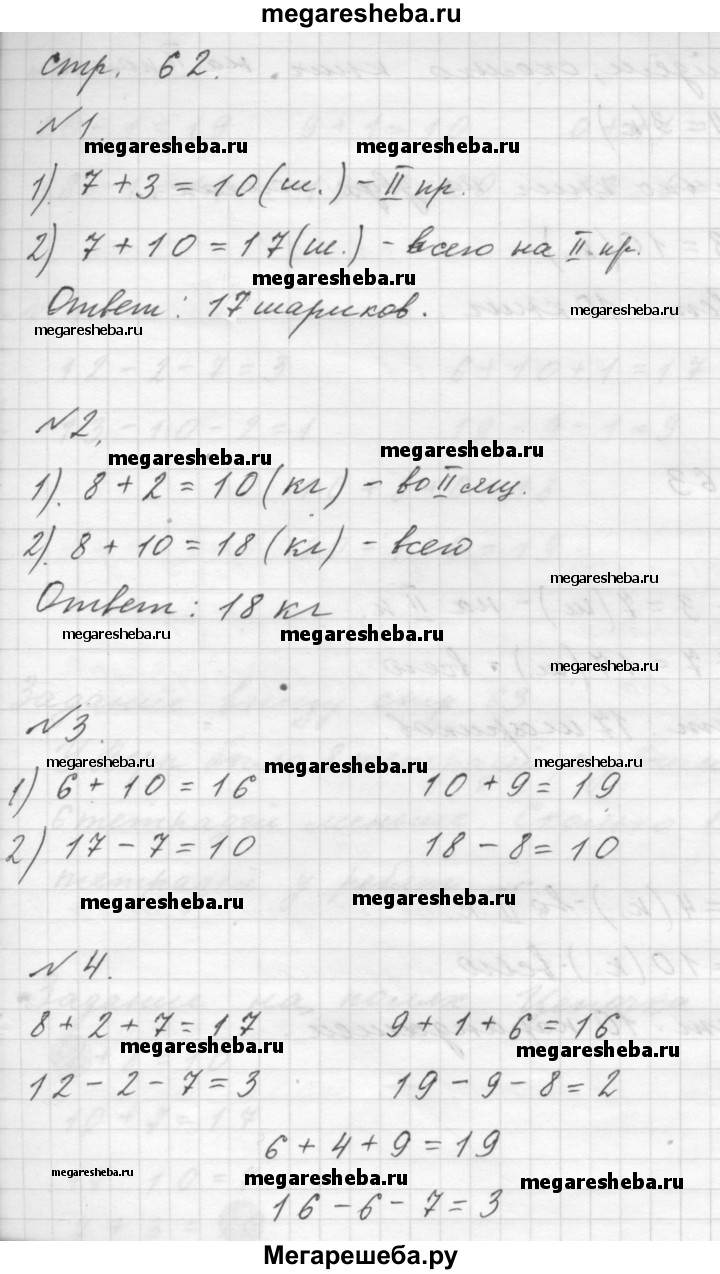 megaresheba.ru
стр. 62.
№1.
megaresheba.ru megaresheba.ru
1). 7 + 3 = 10 (ш.) - II пр.
2) 7 + 10 = 17 (ш.) - всего на II пр.
megaresheba.ru
Ответ: 17 шариков.
megaresheba.ru megaresheba.ru
№2.
megaresheba.ru megaresheba.ru
1). 8 + 2 = 10 (кг) - во II ящ.
2). 8 + 10 = 18 (кг) - всего
megaresheba.ru
Ответ: 18 кг
megaresheba.ru megaresheba.ru
megaresheba.ru
№3.
megaresheba.ru megaresheba.ru
1) 6 + 10 = 16 10 + 9 = 19
2) 17 - 7 = 10 18 - 8 = 10
megaresheba.ru megaresheba.ru
№4.
8 + 2 + 7 = 17 9 + 1 + 6 = 16
megaresheba.ru megaresheba.ru
12 - 2 - 7 = 3 19 - 9 - 8 = 2
6 + 4 + 9 = 19
megaresheba.ru megaresheba.ru
megaresheba.ru
16 - 6 - 7 = 3
Мегарешеба.ру